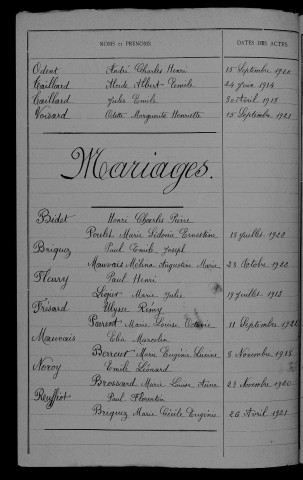 NOMS ET PRÉNOMS DATES DES ACTES
Odent André Charles Henri 15 Septembre 1920
Caillard Alcide Albert Camile 24 Juin 1914
Caillard Jules Emile 30 Avril 1918
Voisard Odette Marguerite Henriette 15 Septembre 1921
Mariages.
Bidot Henri Charles Pierre
Poulet Marie Lédonie Ernestine 18 Juillet 1920
Briquez Paul Emile Joseph
Mauvais Mélina Augustine Marie 28 Octobre 1920
Fleurry Paul Henri
Marie Julie 19 Juillet 1913
Frésard Ulysse Rémy
Parrent Marie Louise Octavie 11 Septembre 1922
Mauvais Elia Marcelin
Berreut Marie Eugénie Lucine 8 Novembre 1913
Noroy Emile Léonard
Brossard Marie Louise Anna 22 Novembre 1920
Reuffiot Paul Florentin
Briquez Marie Cécile Eugénie 26 Avril 1921